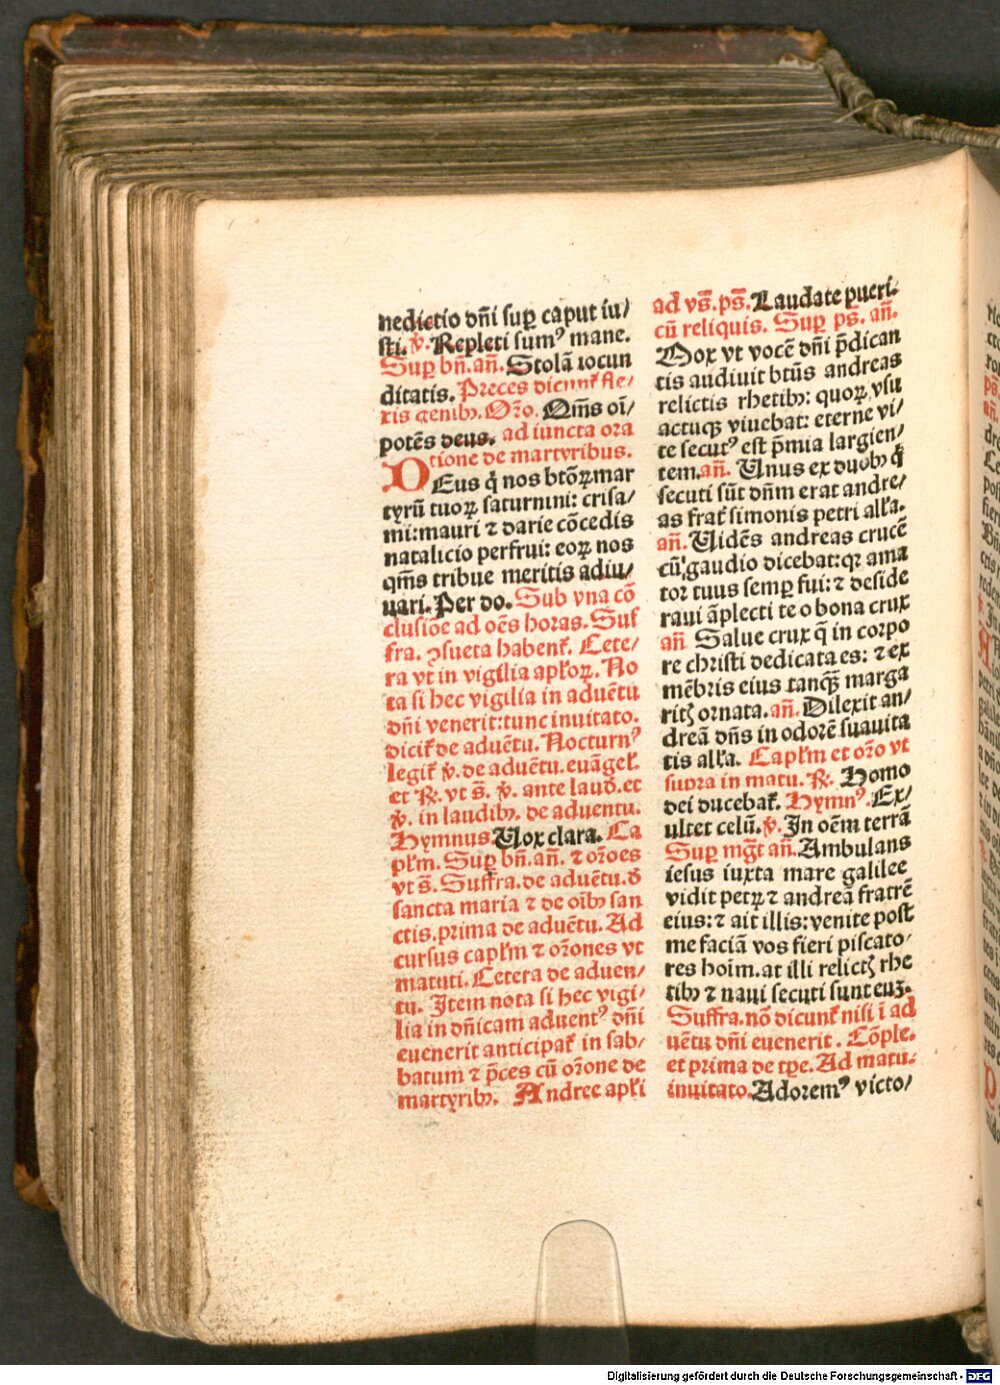 nedictio dñi suꝑ caput iu/
sti. ꝟ. Repleti sumꝰ mane.
Suꝑ bñ. añ. Stolã iocun
ditatis. Preces dicunt᷑ fle/
xis genibꝫ. Oŕo. Om̃s oĩ/
potẽs deus. ad iuncta ora
tione de martyribus.
DEus q̇ nos btõꝝ mar
tyrũ tuoꝝ saturnini: crisa/
mi: mauri ⁊ darie cõcedis
natalicio perfrui: eoꝝ nos
qm̃s tribue meritis adiu/
uari. Per do. Sub vna cõ
clusiõe ad oẽs horas. Suf
fra. ꝯsueta habent᷑. Cete/
ra vt in vigilia apl'oꝝ. No
ta si hec vigilia in aduẽtu
dñi venerit: tunc inuitato.
dicit᷑ de aduẽtu. Nocturnꝰ
legit᷑ ꝟ. de aduẽtu. euãgel'.
et ℟. vt s̃. ꝟ. ante laud̃. et
ꝟ. in laudibꝫ. de aduentu.
Hymnus. Uox clara. Ca
pl'm. Suꝑ bñ. añ. ⁊ oŕoes
vt s̃. Suffra. de aduẽtu. d̃
sancta maria ⁊ de oĩbꝫ san
ctis. prima de aduẽtu. Ad
cursus capl'm ⁊ oŕones vt
matuti. Cetera de aduen/
tu. Item nota si hec vigi/
lia in dñicam aduentꝰ dñi
euenerit anticipat᷑ in sab/
batum ⁊ p̃ces cũ oŕone de
martyribꝫ. Andree apl'i
ad vs̃. ps̃. Laudate pueri.
cũ reliquis. Suꝑ ps̃. añ.
Mox vt vocẽ dñi p̃dican
tis audiuit btũs andreas
relictis rhetibꝫ: quoꝝ vsu
actuqꝫ viuebat: eterne vi/
te secutꝰ est p̃mia largien/
tem. añ. Unus ex duobꝫ q̇
secuti sũt dñm erat andre/
as frat᷑ simonis petri all'a.
añ. Uidẽs andreas crucẽ
cũ gaudio dicebat: qꝛ ama
tor tuus semꝑ fui: ⁊ deside
raui ãplecti te o bona crux
añ. Salue crux q̃ in corpo
re christi dedicata es: ⁊ ex
mẽbris eius tanqꝫ̃ marga
ritꝭ ornata. añ. Dilexit an/
dreã dñs in odorẽ suauita
tis all'a. Capl'm et oŕo vt
supra in matu. ℟. Homo
dei ducebat᷑. Hymnꝰ. Ex/
ultet celũ. ꝟ. In oẽm terrã
Suꝑ mg̃t añ. Ambulans
iesus iuxta mare galilee
vidit petꝝ ⁊ andreã fratrẽ
eius: ⁊ ait illis: venite post
me faciã vos fieri piscato/
res hoĩm. at illi relictꝭ rhe
tibꝫ ⁊ naui secuti sunt euꝫ.
Suffra. nõ dicunt᷑ nisi ĩ ad
uẽtu dñi euenerit. Cõple.
et prima de tꝑe. Ad matu.
inuitato. Adoremꝰ victo/
Digitalisierung gefördert durch die Deutsche Forschungsgemeinschaft - DFG